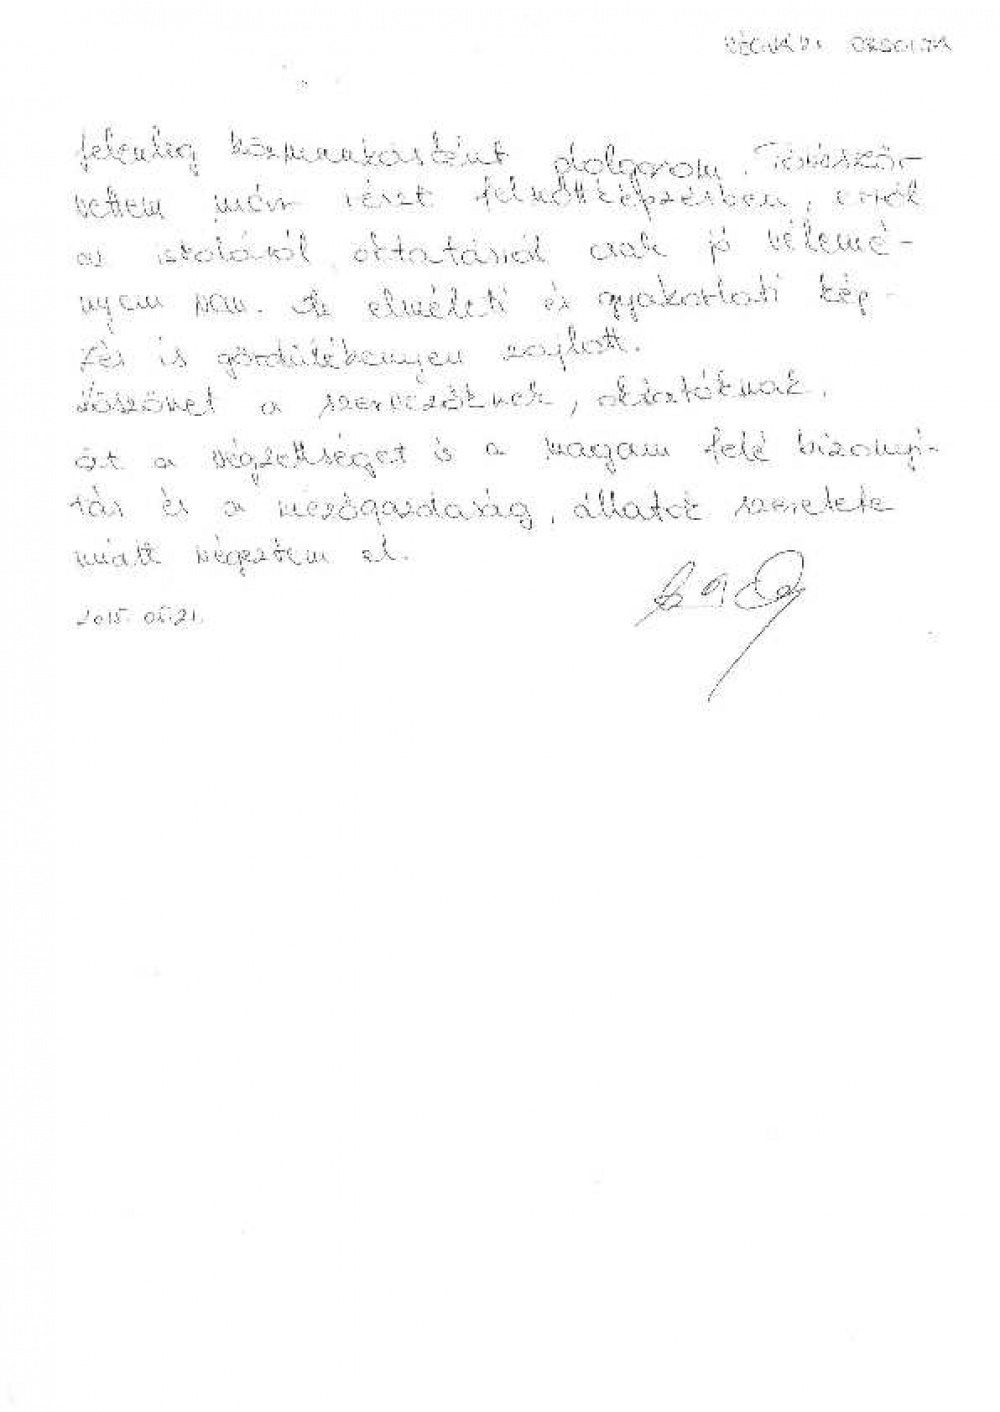 ORSOLYA
Jelenleg közmunkásként dolgozom. Többször
vettem már részt felnőttképzésben, erről
az iskoláról, oktatásról csak jó vélemé-
nyem van. Az elméleti és gyakorlati kép-
zés is gördülékenyen zajlott.
Köszönet a szervezőknek, oktatóknak.
a végzettséget is a magam felé bizonyí-
tás és a mezőgazdaság, állatok szeretete
miatt végeztem el.
2015. 05. 21.